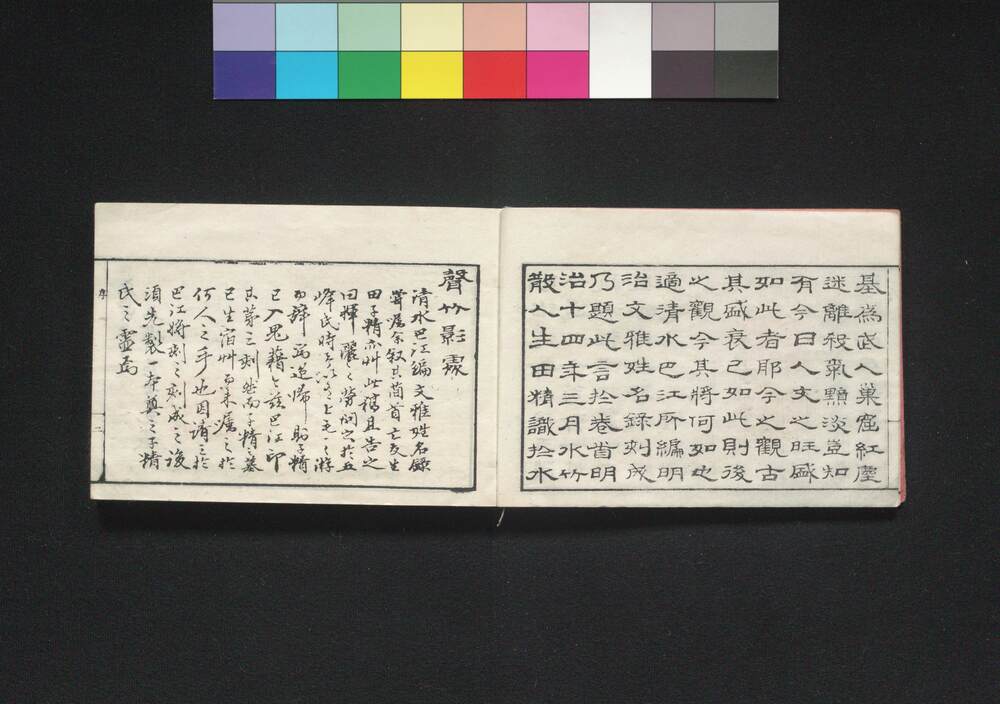 墓為武人巢窟紅塵
迷離殺氣黯淡豈知
有今日人文之旺盛
如此者耶今之觀古
其盛衰已如此則後
之觀今其將何如也
適清水巴江所編明
治文雅姓名錄刻成
乃題此言於卷首明
治十四年三月水竹
散人生田精識於水
聲竹影處
清水巴江編文雅姓名錄
嘗属余叙其簡首亡友生
田子精亦叫此稿且告之
曰揮灑之勞問穴於五
峰氏時
已入鬼籍
其第三刻然而子精之墓
已生宿艸
何人之手也因請之於
巴江將刻之刻成之後
須先製一本奠之子精
氏之靈焉
序
二